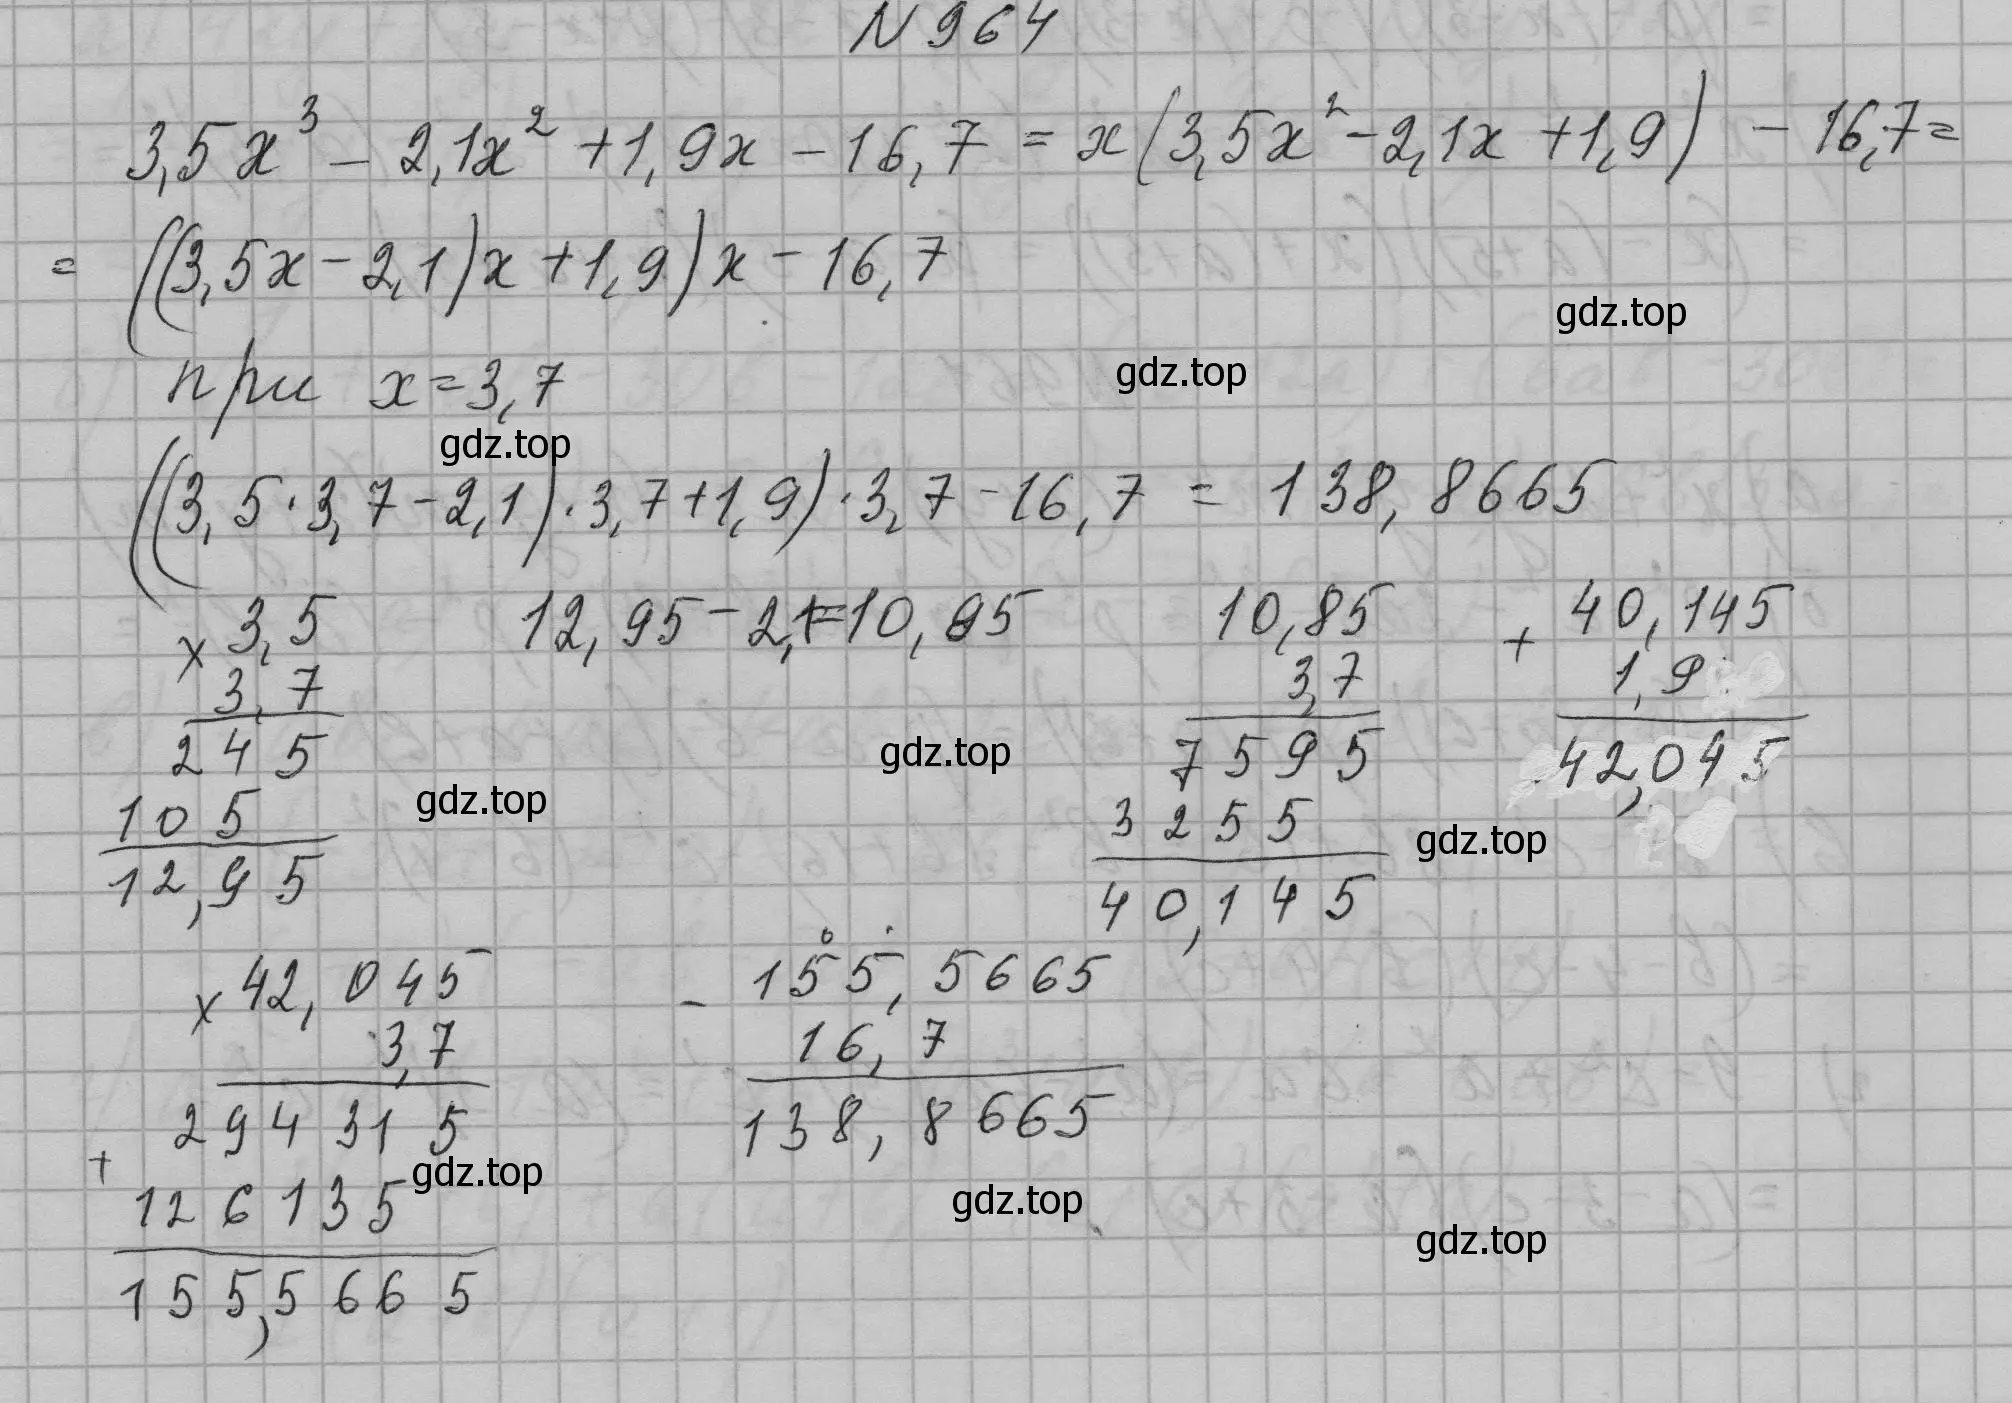 N 964
3,5x³ - 2,1x² + 1,9x - 16,7 = x(3,5x² - 2,1x + 1,9) - 16,7 =
= ((3,5x - 2,1)x + 1,9)x - 16,7
gdz.top
при x = 3,7
gdz.top
gdz.top
((3,5 · 3,7 - 2,1) · 3,7 + 1,9) · 3,7 - 16,7 = 138,8665
× 3,5
3,7
245
105
12,95
12,95 - 2,1 = 10,85
10,85
3,7
7595
3255
40,145
+ 40,145
1,9
42,045
gdz.top
gdz.top
gdz.top
× 42,045
3,7
294315
+ 126135
155,5665
- 155,5665
16,7
138,8665
gdz.top
gdz.top
gdz.top